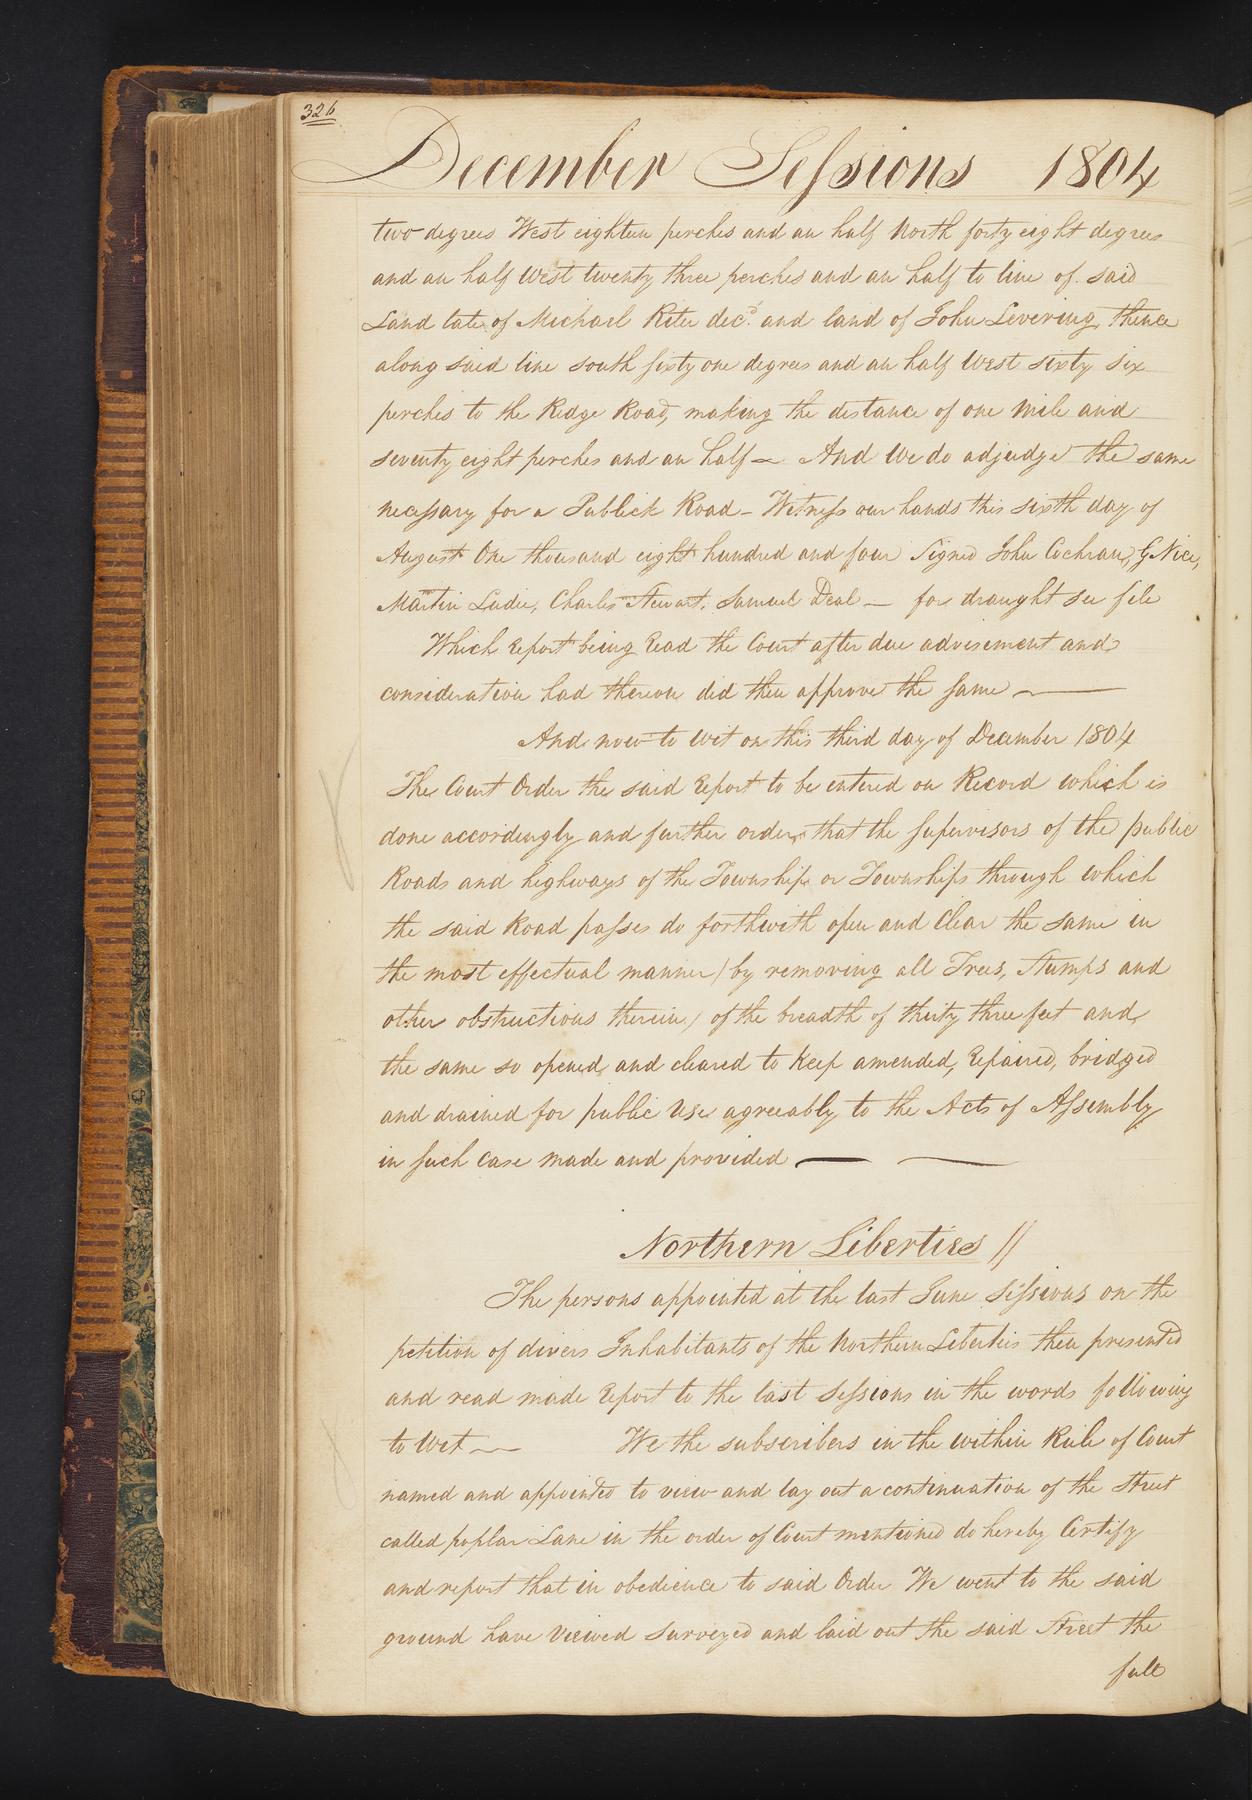 326
December Sessions 1804
two degrees West eighteen perches and an half North forty eight degrees
and an half West twenty three perches and an half to line of said
Land late of Michael Riter decd. and land of John Levering, thence
along said line south forty one degrees and an half West sixty six
perches to the Ridge Road, making the distance of one Mile and
seventy eight perches and an half — And We do adjudge the same
necessary for a Publick Road — Witness our hands this sixth day of
August One thousand eight hundred and four Signed John Cochran, G Nice,
Martin Ludie, Charles Stewart, Samuel Deal — for draught see file
Which Report being Read the Court after due advisement and
consideration had thereon did then approve the same —
And now to wit on this third day of December 1804
The Court Order the said Report to be entered on Record which is
done accordingly and further order, that the supervisors of the public
Roads and highways of the Township or Townships through which
the said Road passes do forthwith open and Clear the same in
the most effectual manner (by removing all Trees, Stumps and
other obstructions therein) of the breadth of thirty three feet and
the same so opened and cleared to keep amended, Repaired, bridged
and drained for public Use agreeably to the Acts of Assembly
in such Case made and provided — —
Northern Liberties //
The persons appointed at the last June Sessions on the
petition of divers Inhabitants of the Northern Liberties then presented
and read made Report to the last Sessions in the words following
to Wit — We the subscribers in the within Rule of Court
named and appointed to view and lay out a continuation of the Street
called poplar Lane in the order of Court mentioned do hereby Certify
and report that in obedience to said Order We went to the said
ground have Viewed Surveyed and laid out the said Street the
full